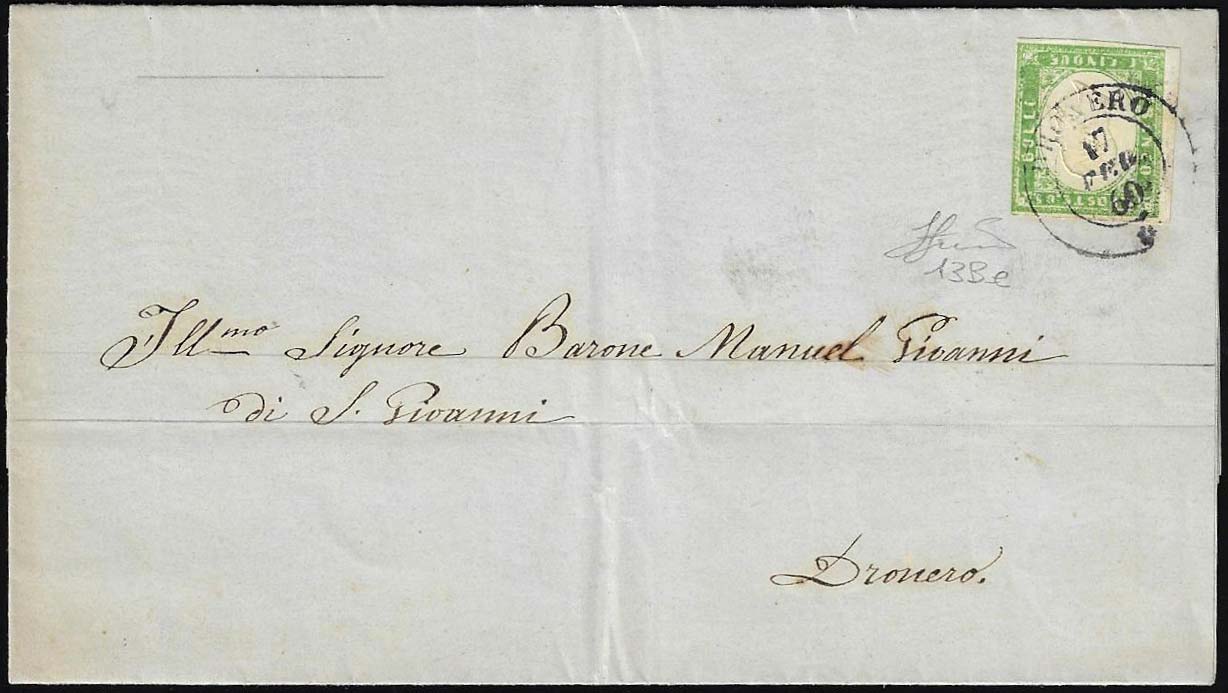 C. CINQUE
BOLLO
POSTE
DRONERO
17
FEB
60
13Be
Ill.mo Signore Barone Manuel Giovanni
di S. Giovanni
Dronero.